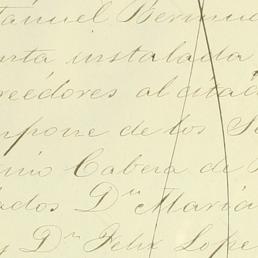 tánuel Bermud
nta instalada
reedores al citad
mpone de los Se
nio Cabera de
ados Dn Maria
y Dn Felix Lope